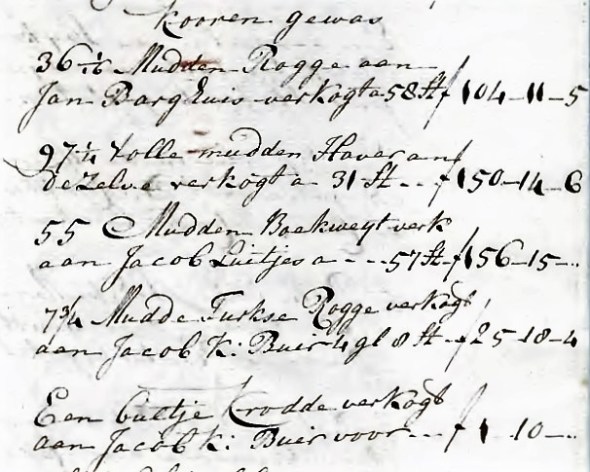 kooren gewas
36 1/16 Mudden Rogge aan
Jan Barghuis verkogt a 58 St f 104-11-5
97 1/4 volle mudden Haver an
dezelve verkogt a 31 St -- f 150-14-6
55 Mudden Boekweyt verk
aan Jacob Luitjes a --- 57 St f 156-15-..
7 3/4 Mudde Turkse Rogge verkogt
aan Jacob K: Buir 4 gl 8 St -- f 25-18-4
Een bultje Krodde verkogt
aan Jacob K: Buir voor --- f 1-10-..